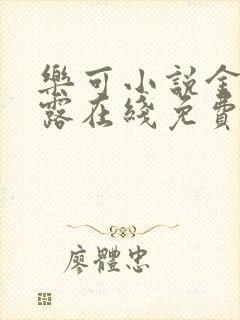 樂可小說金
露在綫免費
廖體忠